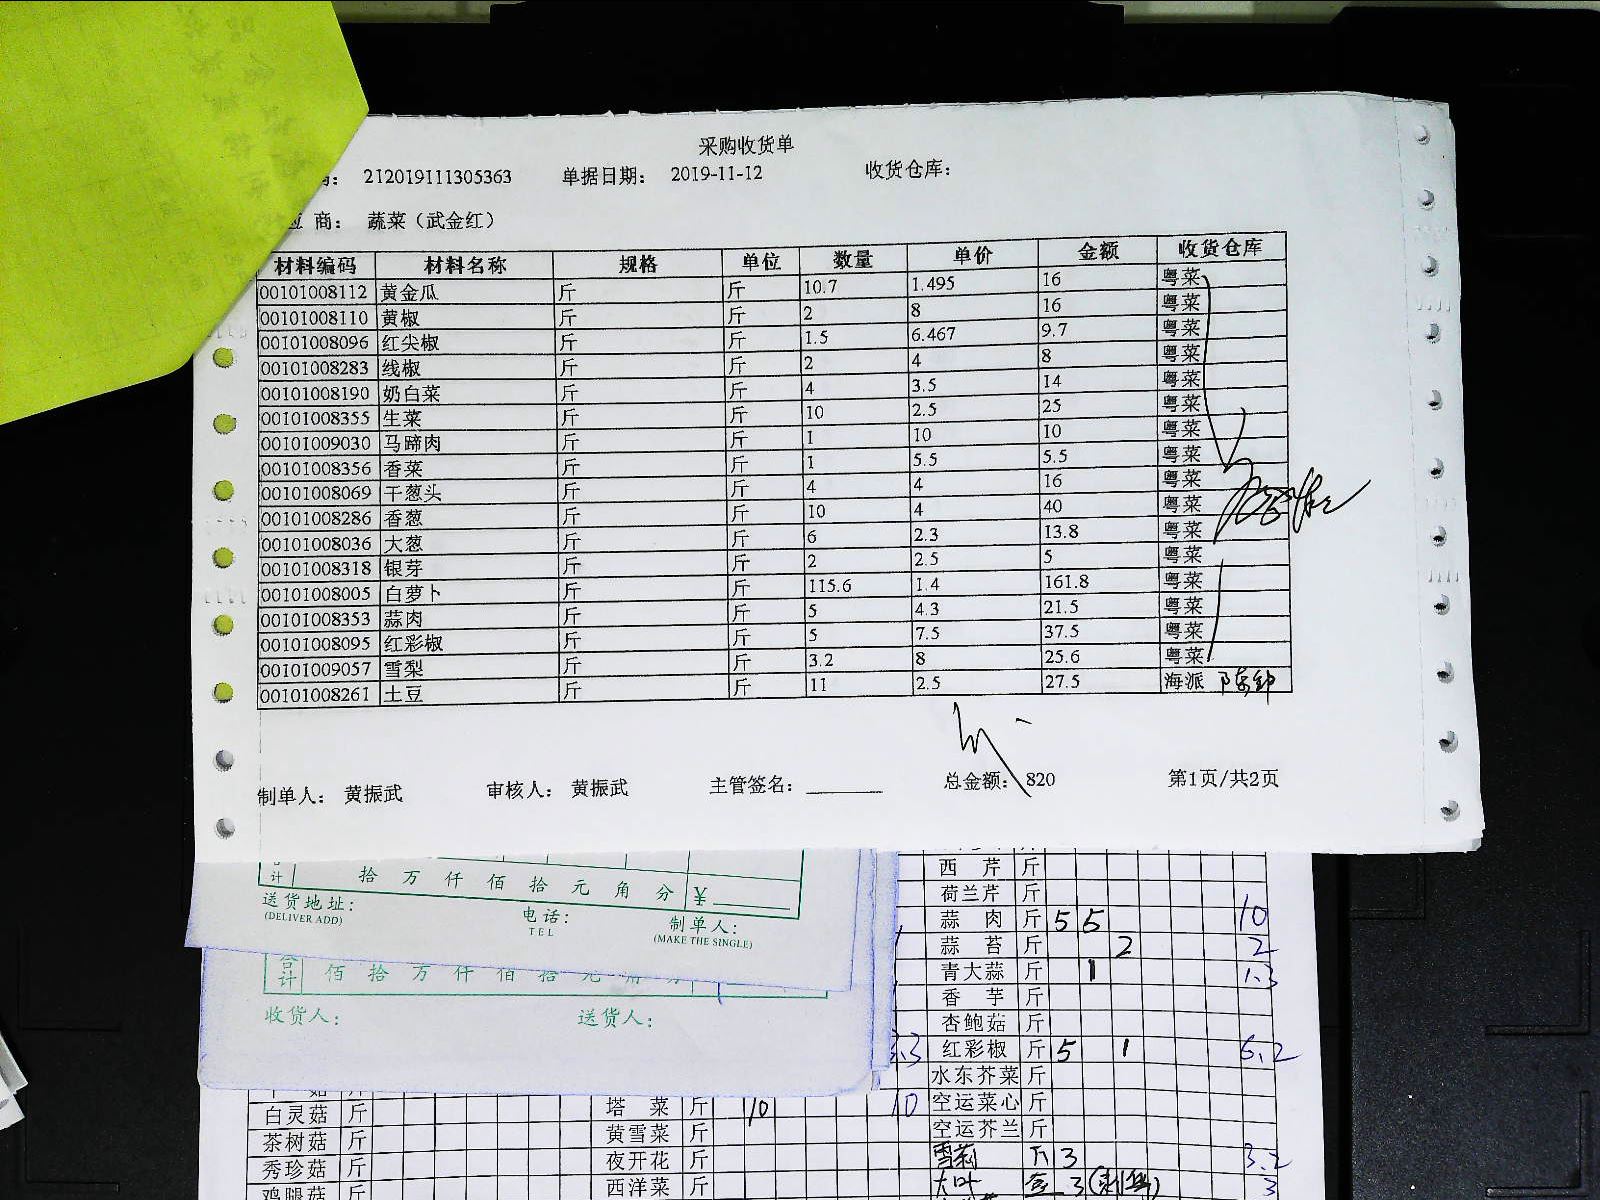 采购收货单
212019111305363 单据日期: 2019-11-12 收货仓库:
商: 蔬菜（武金红）
材料编码 材料名称 规格 单位 数量 单价 金额 收货仓库
00101008112 黄金瓜 斤 斤 10.7 1.495 16 粤菜
00101008110 黄椒 斤 斤 2 8 16 粤菜
00101008096 红尖椒 斤 斤 1.5 6.467 9.7 粤菜
00101008283 线椒 斤 斤 2 4 8 粤菜
00101008190 奶白菜 斤 斤 4 3.5 14 粤菜
00101008355 生菜 斤 斤 10 2.5 25 粤菜
00101009030 马蹄肉 斤 斤 1 10 10 粤菜
00101008356 香菜 斤 斤 1 5.5 5.5 粤菜
00101008069 干葱头 斤 斤 4 4 16 粤菜
00101008286 香葱 斤 斤 10 4 40 粤菜
00101008036 大葱 斤 斤 6 2.3 13.8 粤菜
00101008318 银芽 斤 斤 2 2.5 5 粤菜
00101008005 白萝卜 斤 斤 115.6 1.4 161.8 粤菜
00101008353 蒜肉 斤 斤 5 4.3 21.5 粤菜
00101008095 红彩椒 斤 斤 5 7.5 37.5 粤菜
00101009057 雪梨 斤 斤 3.2 8 25.6 粤菜
00101008261 土豆 斤 斤 11 2.5 27.5 海派
制单人: 黄振武 审核人: 黄振武 主管签名: 总金额: 820 第1页/共2页
计 拾 万 仟 佰 拾 元 角 分 ¥
送货地址: 电话: 制单人:
(DELIVER ADD) TEL (MAKE THE SINGLE)
合计 佰 拾 万 仟 佰 拾 元
收货人: 送货人:
西芹 斤
荷兰芹 斤
蒜肉 斤 5 5 10
蒜苔 斤 2 2
青大蒜 斤 1 1.3
香芋 斤
杏鲍菇 斤
红彩椒 斤 5 1 6.2
水东芥菜 斤
白灵菇 斤 塔菜 斤 10 10 空运菜心 斤
茶树菇 斤 黄雪菜 斤 空运芥兰 斤
秀珍菇 斤 夜开花 斤 3 3.2
鸡腿菇 斤 西洋菜 斤 大叶 3 3